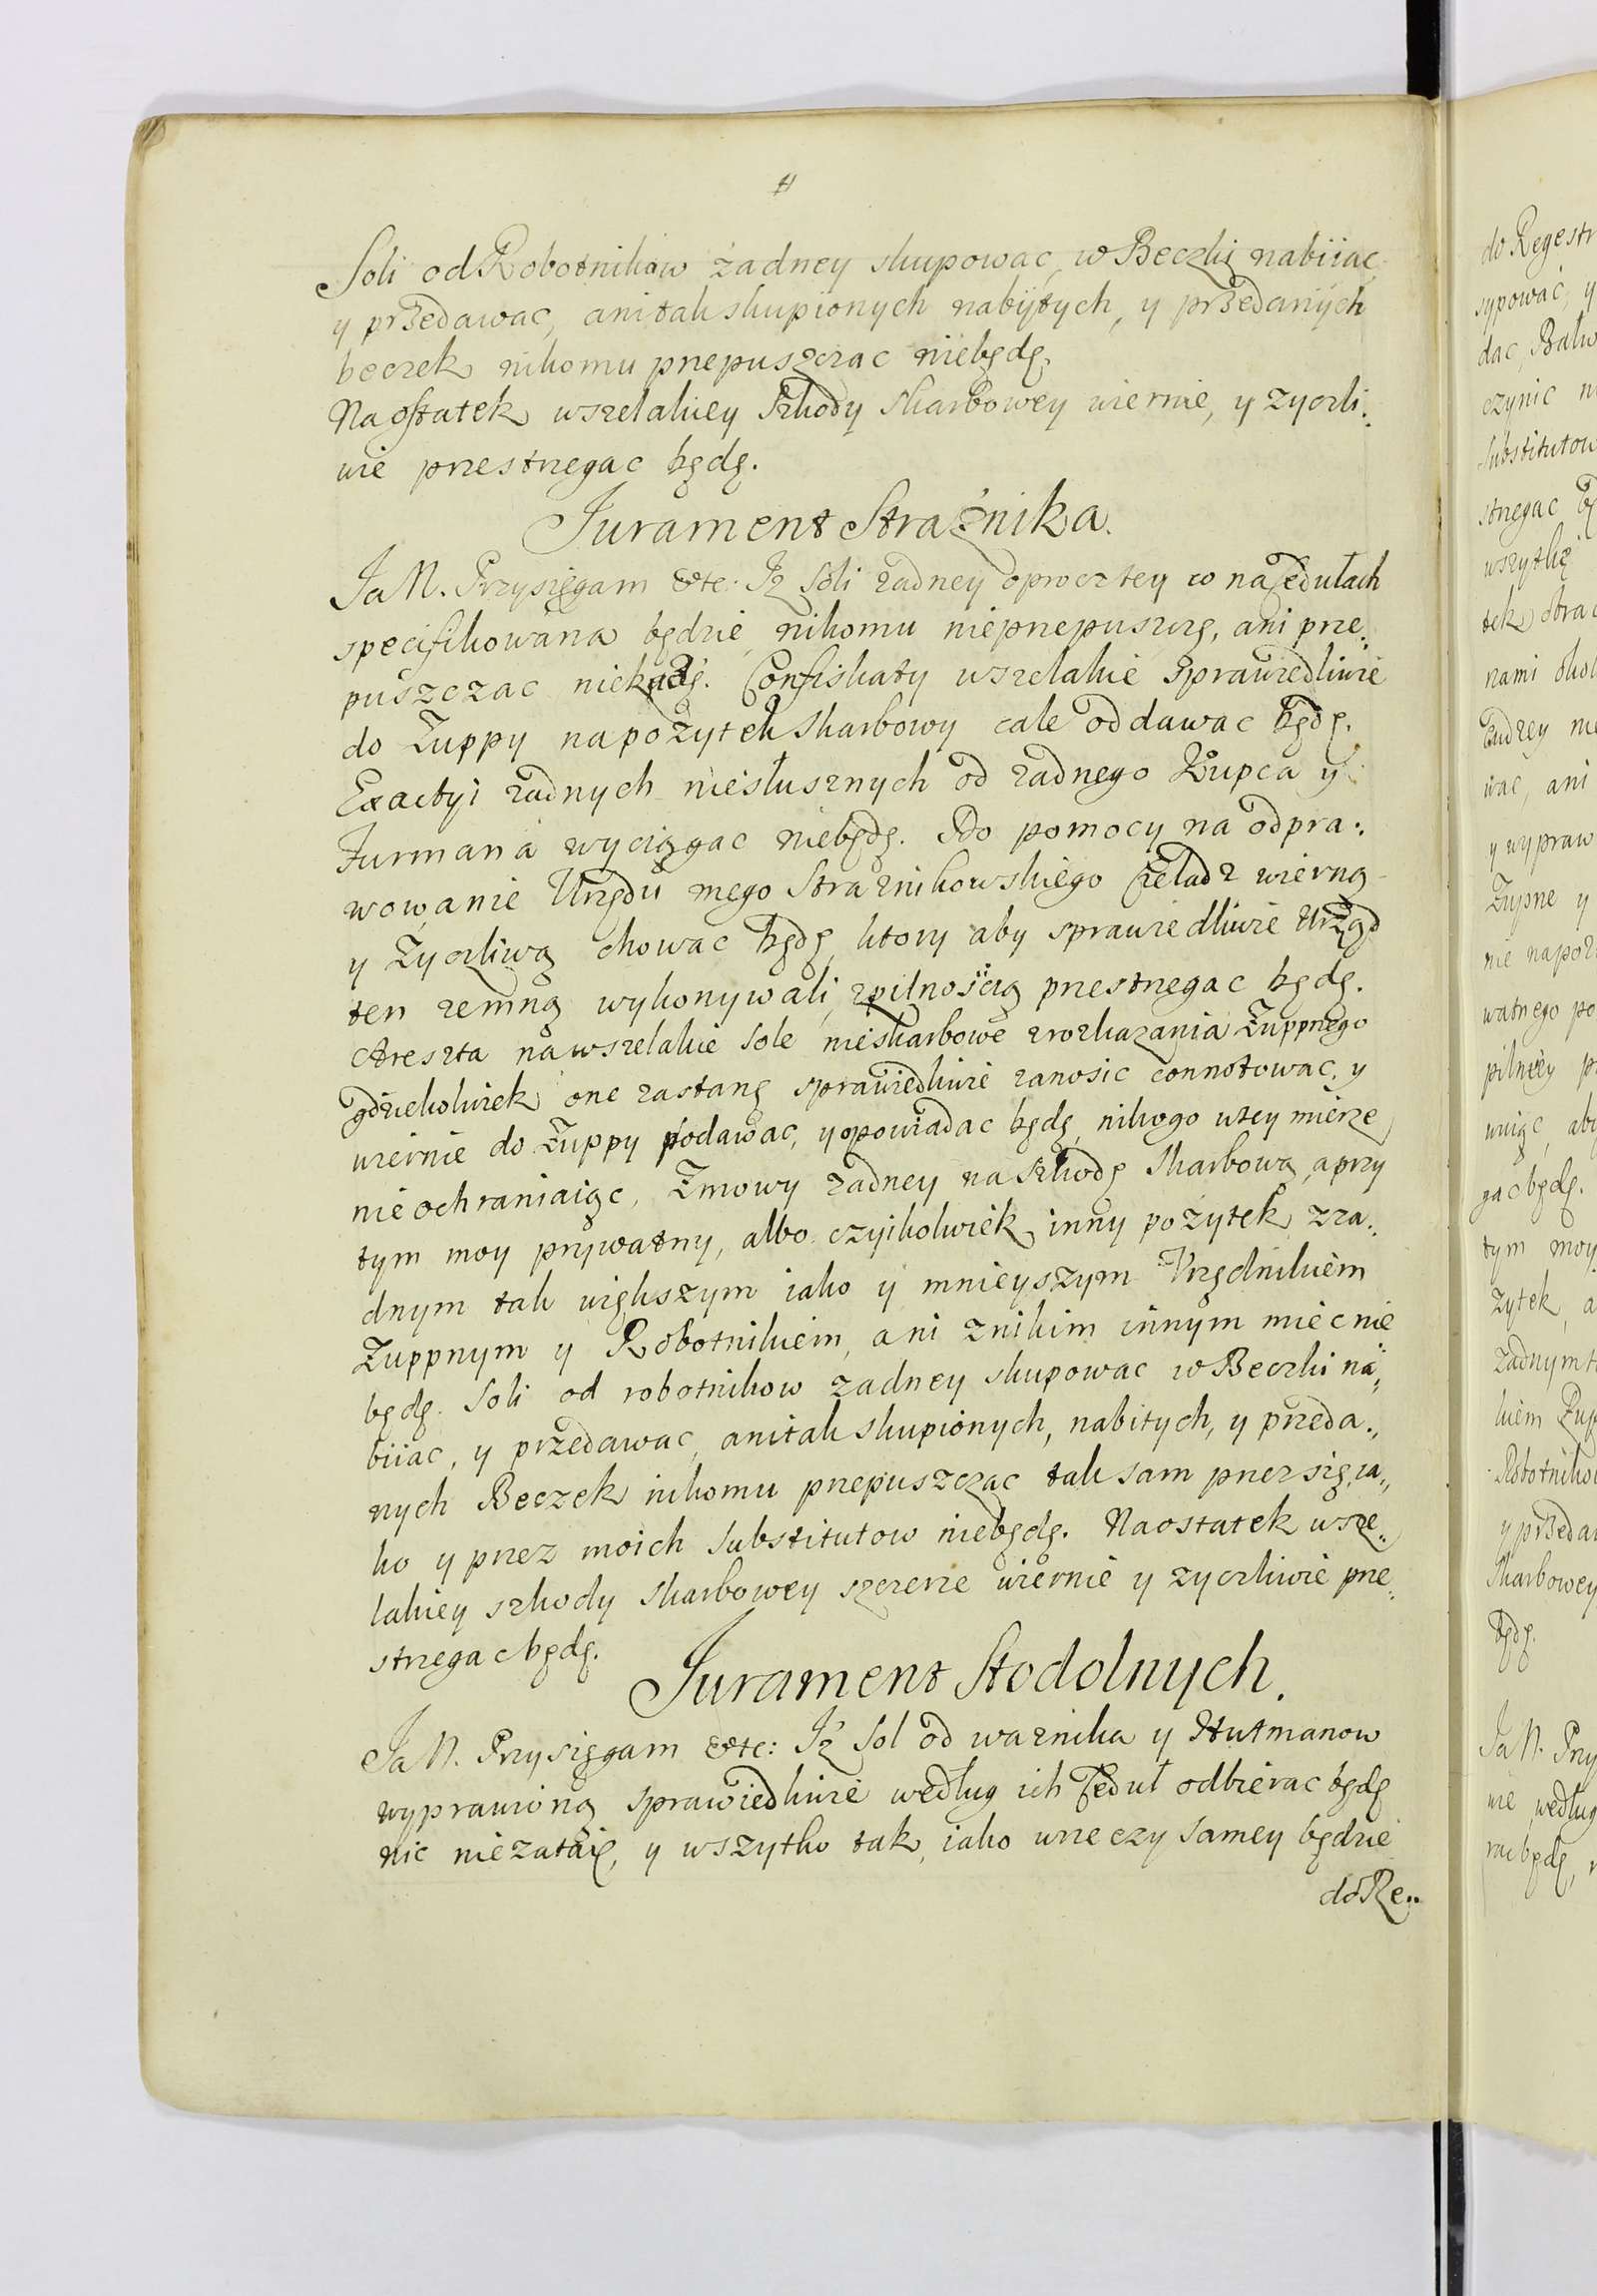 Soli od Robotnikow źadney skupowac, w Beczki nabiiac
y przedawac, ani tak skupionych nabytych, y przedanych
beczek nikomu przepuszczac niebędę.
Na ostatek wszelakiey szkody skarbowey wiernie, y zyczli:
wie przestrzegac będę.
Jurament Straźnika.
Ja N. Przysięgam &tc: Iz soli zadney oprocz tey co na cedułach
specifikowana będzie, nikomu nieprzepuszczę, ani prze:
puszczac niebędę. Confiskaty wszelakie sprawiedliwie
do Zuppy na pozytek skarbowy cale oddawac będę.
Exactyi zadnych niesłusznych od zadnego Kupca y
Furmana wyciągac niebędę. Do pomocy na odpra:
wowanie Urzędu mego Straznikowskiego Czeladz wierną
y Zyczliwą chowac będę, ktory aby sprawiedliwie Urząd
ten zemną wykonywali, zpilnością przestrzegac będę.
Areszta na wszelakie sole nieskarbowe z rozkazania Zuppnego
gdziekolwiek one zastanę sprawiedliwie zanosic connotowac, y
wiernie do Zuppy podawac, y opowiadac będę, nikogo wtey mierze
nie ochraniaiąc, Zmowy zadney na szkodę skarbową, a przy
tym moy prywatny, albo czyikolwiek inny pozytek zza:
dnym tak większym iako y mnieyszym Urzędnikiem
Zuppnym y Robotnikiem, ani znikim innym miec nie
będę. Soli od robotnikow zadney skupowac w Beczki na:
biiac, y przedawac, ani tak skupionych, nabitych, y przeda:
nych Beczek nikomu przepuszczac tak sam przez się, ia:
ko y przez moich substitutow niebędę. Na ostatek wsze:
lakiey szkody skarbowey szczerze wiernie y zyczliwie prze:
strzegac będę.
Jurament Stodolnych.
Ja N. Przysięgam &tc: Iź sol od waznika y Hutmanow
wyprawioną sprawiedliwie według ich Ceduł odbierac będę
nic niezataię, y wszytko tak, iako wrzeczy samey będzie
do Re:
do Regestr
sypowac, y
dac,
czynic
substitutow
strzegac
wszytkę
tek
nami
wac, ani
y wypraw
Zupne y
watnego po
pilniey
aby
gac będę.
tym moy
zytek, a
zadnym
kiem Zup
Robotniko
y przeda
skarbowey
będę.
Ja N. Przy
wie według
rac będę,